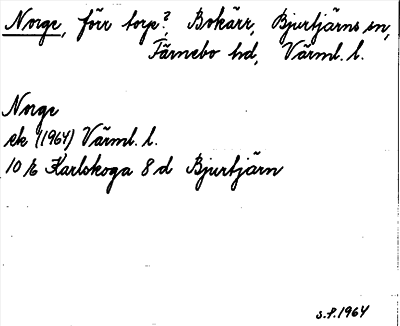 Norge, förr torp?, Bokärr, Bjurtjärns sn,
Färnebo hd, Värml. l.
Norge
ek (1964) Värml. l.
10 E Karlskoga 8 d Bjurtjärn
S.F. 1964